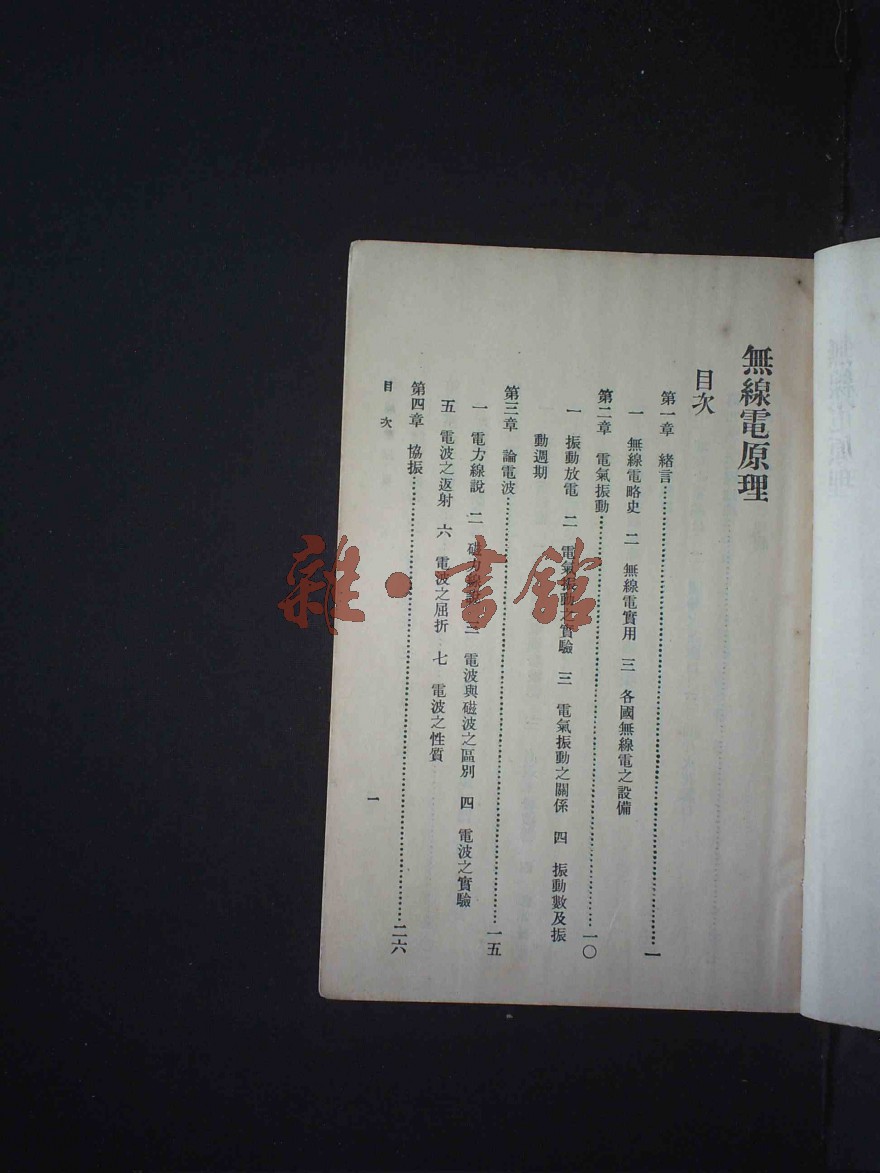 無線電原理
目次
第一章 緒言……一
一 無線電略史 二 無線電實用 三 各國無線電之設備
第二章 電氣振動……一〇
一 振動放電 二 電氣振動之實驗 三 電氣振動之關係 四 振動數及振
動週期
第三章 論電波……一五
一 電力線說 二 磁力線說 三 電波與磁波之區別 四 電波之實驗
五 電波之返射 六 電波之屈折 七 電波之性質
第四章 協振……二六
目次
一
雜·書館